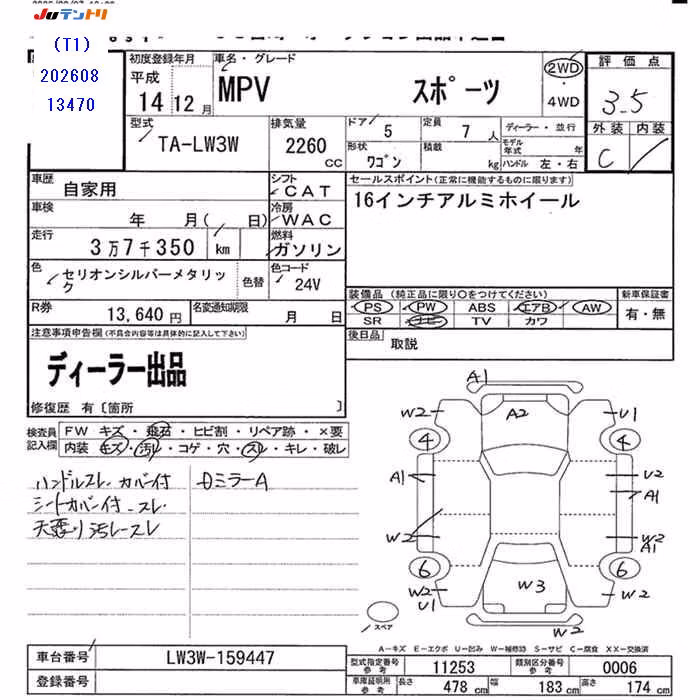 JUテントリ
(T1)
202608
13470
初度登録年月
平成
14 12月
車名・グレード
MPV スポーツ
2WD
・
4WD
評価点
3.5
外装 内装
C
型式
TA-LW3W
排気量
2260
CC
ドア
5
定員
7人
ディーラー・並行
形状
ワゴン
積載
kg
モデル年式 年
ハンドル 左・右
車歴
自家用
シフト
CAT
車検
年 月( 日)
冷房
WAC
走行
3万7千350 km
燃料
ガソリン
色
セリオンシルバーメタリック
色替
色コード
24V
R券
13,640円
名変通知期限
月 日
セールスポイント(正常に機能するものに限ります)
16インチアルミホイール
装備品 (純正品に限り〇をつけてください)
PS PW ABS エアB AW
SR ナビ TV カワ
新車保証書
有・無
後日品
取説
注意事項申告欄(不具合内容等は具体的に記入して下さい)
ディーラー出品
修復歴 有〔箇所 〕
検査員記入欄
FW キズ・飛石・ヒビ割・リペア跡・×要
内装 キズ・汚れ・コゲ・穴・スレ・キレ・破レ
ハンドルスレ・カバー付
シートカバー付・スレ
天張り汚レースレ
Dミラー A
A1
W2 A2 U1
4 4
A1 U2
A1
W2 W2
A1
6 6
W2 W3 W2
U1
W2
スペア
A-キズ E-エクボ U-凹み W-補修跡 S-サビ C-腐食 XX-交換済
車台番号
LW3W-159447
登録番号
型式指定番号
参考
11253
類別区分番号
参考
0006
車庫証明用
参考
長さ
478 cm
幅
183 cm
高さ
174 cm